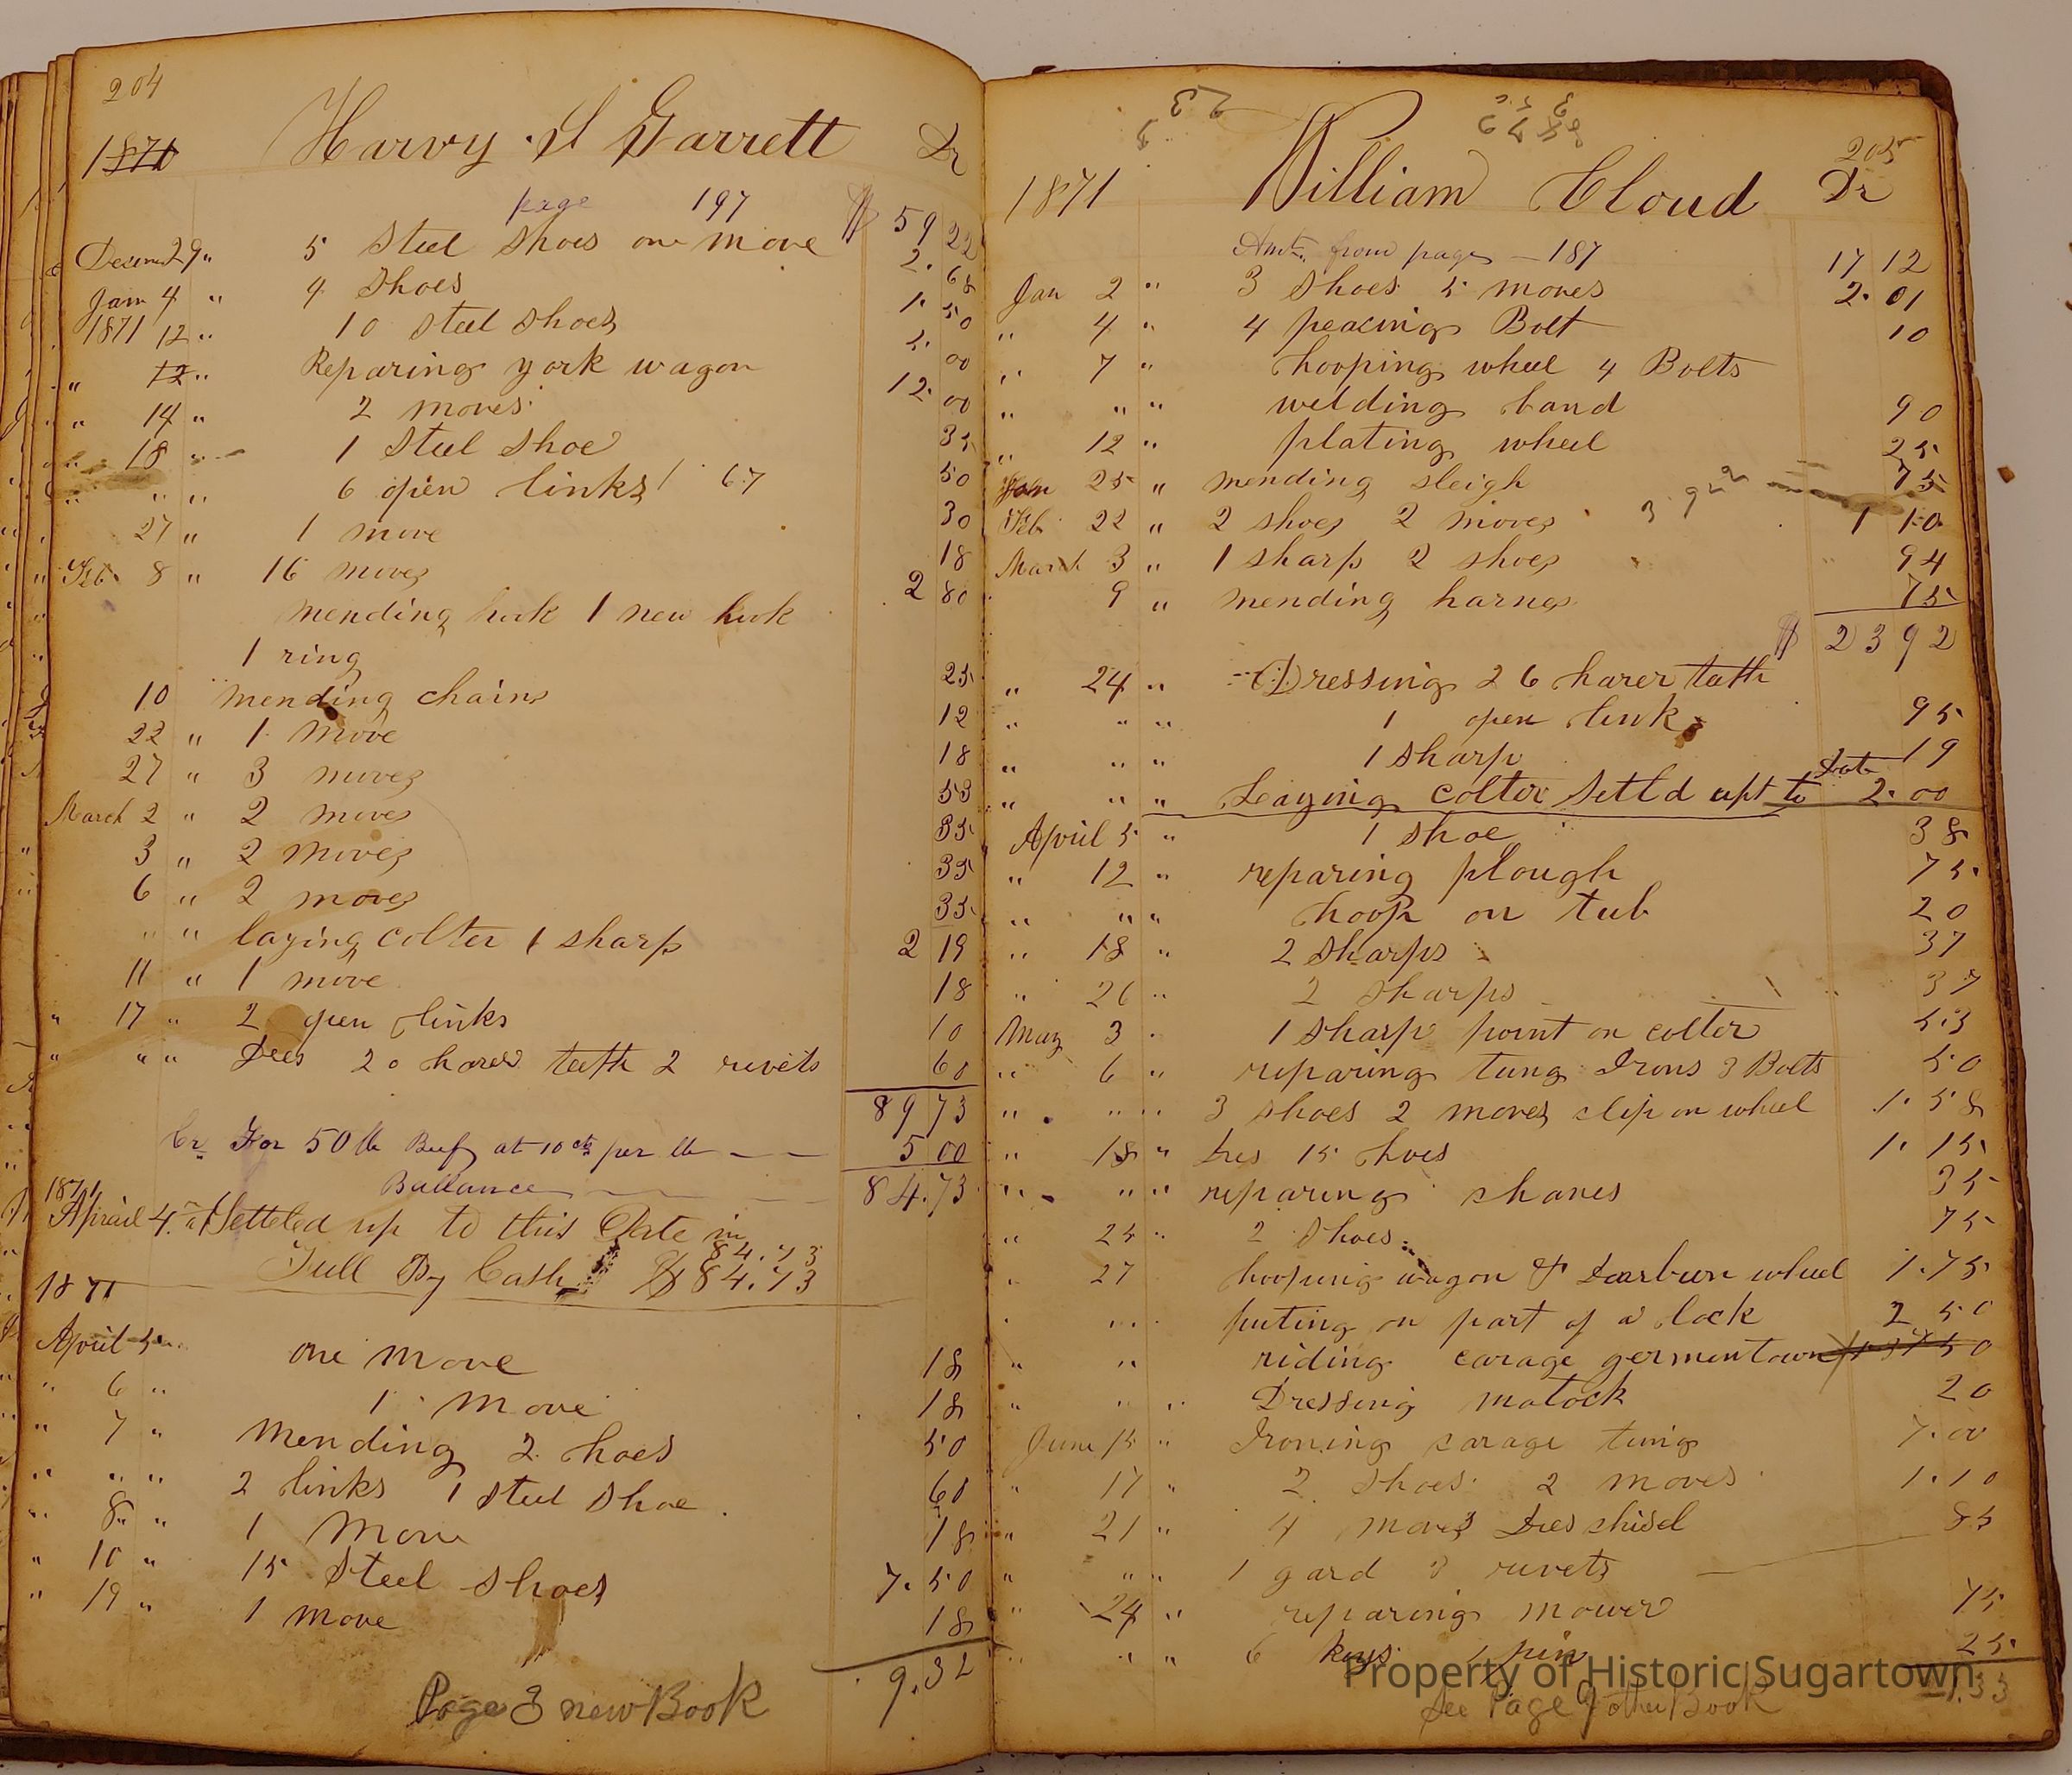 204
1870 Harvy S Garrett Dr
page 197 $ 59 22
Decem 29 " 5 Steel Shoes one move 2. 68
Jan 4 " 4 Shoes 1. 50
1871 12 " 10 steel shoes 5. 00
" 12 " Reparing york wagon 12. 00
" 14 " 2 moves 35
18 " 1 Steel Shoe 50
" " " 6 open links 1 67 30
27 " 1 move 18
Feb 8 " 16 moves 2 80
mending hook 1 new hook
1 ring 25
10 mending chains 12
22 " 1 move 18
27 " 3 moves 53
March 2 " 2 moves 35
3 " 2 moves 35
6 " 2 moves 35
" " laying colter 1 sharp 2 19
11 " 1 move 18
" 17 " 2 open links 10
" " " Dres 20 harer teeth 2 rivets 60
89 73
Cr For 50 lb Beef at 10 cts per lb 5 00
Ballance 84.73
1871
Aprail 4. Setteled up to this Date in
84.73
Full By Cash $84.73
1871
April 5 " one move 18
" 6 " 1 move 18
" 7 " mending 2 hoes 50
" " " 2 links 1 steel shoe 60
" 8 " 1 move 18
" 10 " 15 Steel shoes 7. 50
" 19 " 1 move 18
9.32
Page 3 new Book
205
1871 William Cloud Dr
Amt. from page 187 17 12
Jan 2 " 3 Shoes 5 moves 2. 01
" 4 " 4 peacing Bolt 10
" 7 " hooping wheel 4 Bolts
" " " welding band 90
" 12 " plating wheel 25
Jan 25 " mending sleigh 75
Feb 22 " 2 shoes 2 moves 1 10
March 3 " 1 sharp 2 shoes 94
9 " mending harnes 75
$ 23 92
" 24 " Dressing 26 harer teeth
" " " 1 open link 95
" " " 1 sharp 19
" " " Laying colter Setld upt to Date 2. 00
April 5 " 1 shoe 38
" 12 " reparing plough 75
" " " hoop on tub 20
" 18 " 2 sharps 37
" 26 " 2 sharps 37
May 3 " 1 sharp point on colter 53
" 6 " reparing tung Irons 3 Bolts 50
" " " 3 shoes 2 moves clip on wheel 1. 58
" 18 " Dres 15 hoes 1. 15
" " " reparing shares 35
" 25 " 2 shoes 75
" 27 hooping wagon & Dearburn wheel 1.75
" " " puting on part of a lock 2 50
" " riding carage germentown
" " " Dressing matock 20
June 15 " Ironing carage tung 7.00
" 17 " 2 shoes 2 moves 1.10
" 21 " 4 moves Dres chisel 85
" " " 1 gard 3 rivets
" 24 " reparing mower 75
" " " 6 keys 1 pin 25
Property of Historic Sugartown
See Page 9 other Book